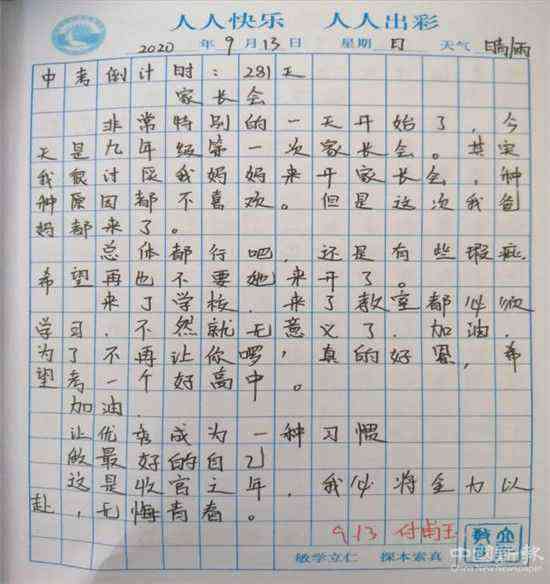 人人快乐 人人出彩
2020 年 9 月 13 日 星期 日 天气 晴/雨
中考倒计时：281天
家长会
非常特别的一天开始了，今
天是九年级第一次家长会。其实
我很讨厌我妈妈来开家长会，种
种原因都不喜欢。但是这次我爸
妈都来了。
总体都行吧，还是有些瑕疵.
希望再也不要她来开了。
来了学校，来了教室都必须
学习，不然就无意义了，加油.
为了不再让你啰，真的好累，希
望考一个好高中。
加油.
让优秀成为一种习惯
做最好的自己
这是收官之年，我必将全力以
赴，无悔青春。
9.13
敏学立仁 探本索真
中国新报